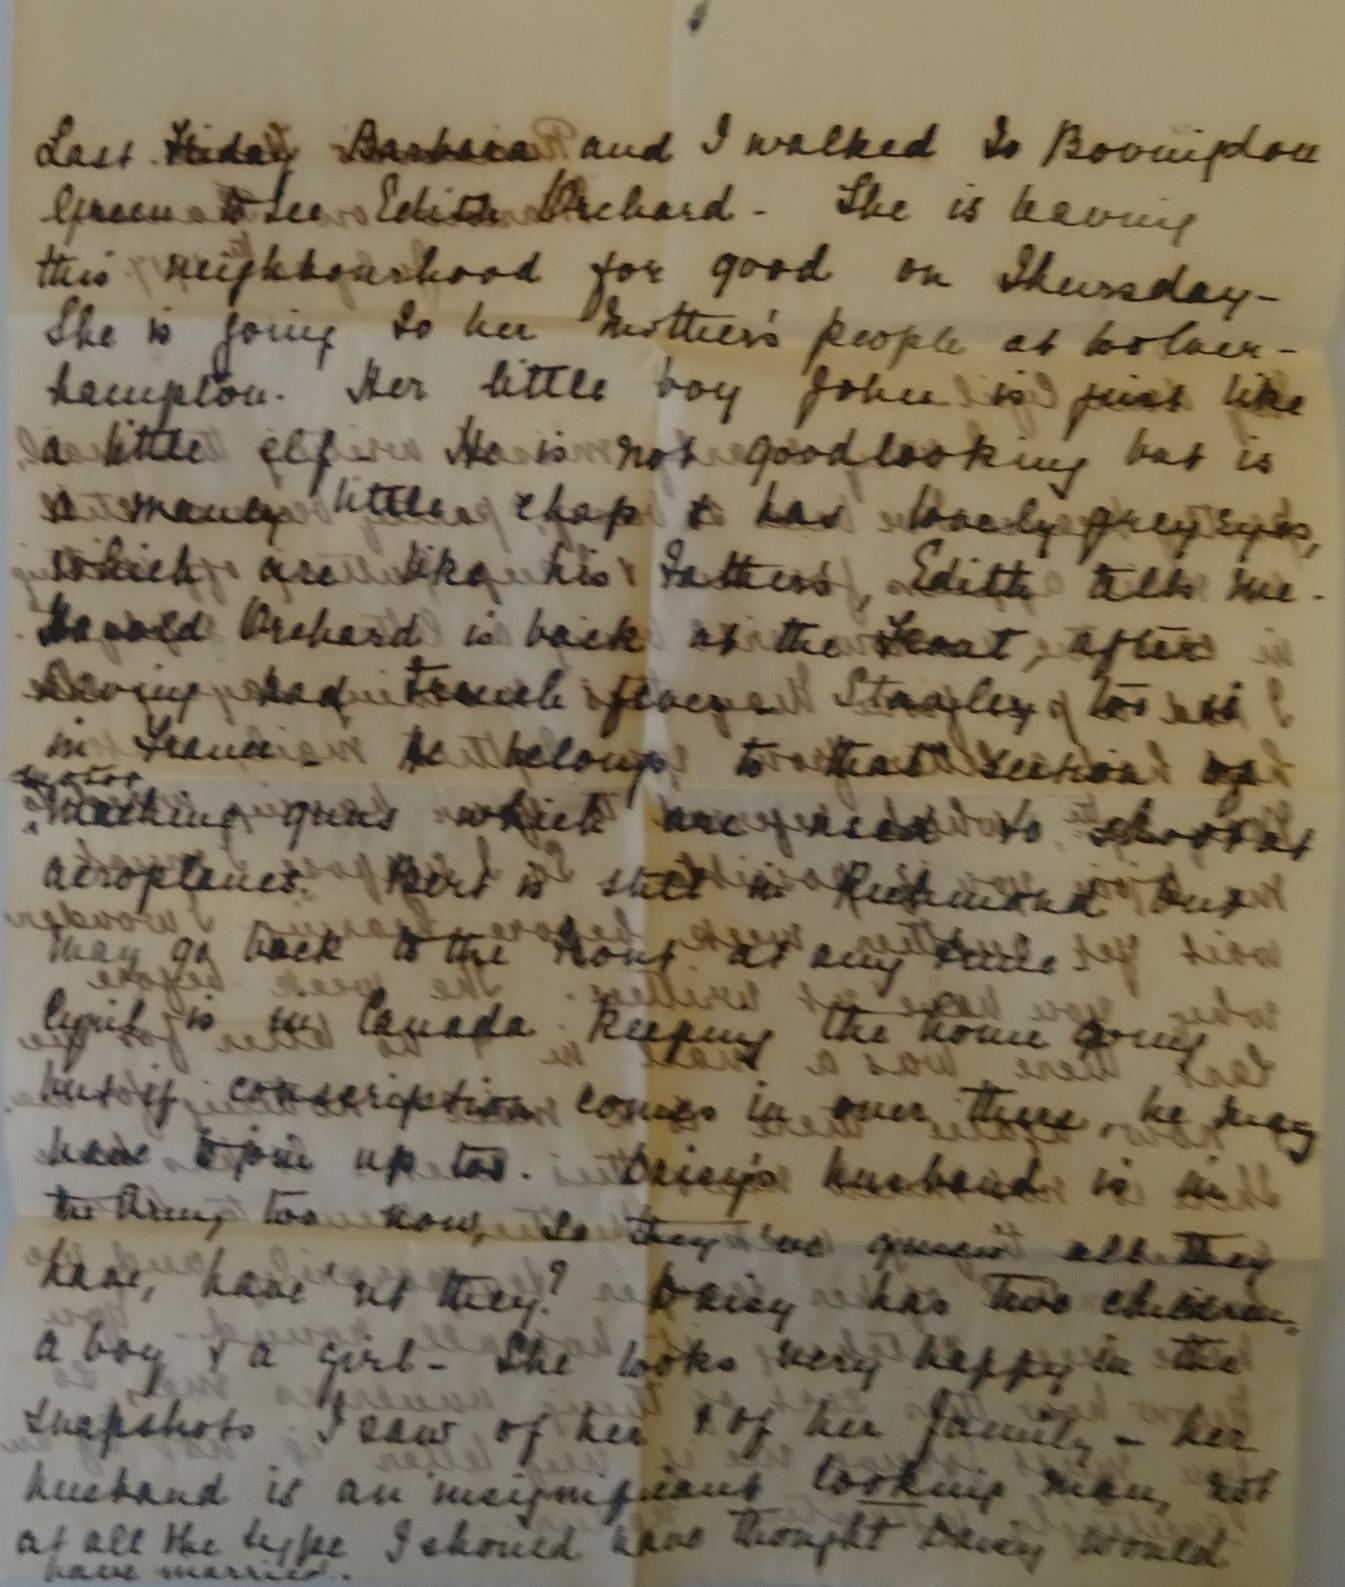 Last Friday Barbara and I walked to Bovingdon
Green to see Edith Orchard - She is leaving
this neighbourhood for good on Thursday -
She is going to her Mother's people at Wolver-
hampton. Her little boy John is just like
a little elf. He is not goodlooking but is
a manly little chap & has lovely grey eyes,
which are like his Father's, Edith tells me -
Harold Orchard is back at the Front, after
having had trench fever. Stanley too is
in France - He belongs to that section of
motor
machine guns which are used to shoot at
aeroplanes. Bert is still in Richmond but
may go back to the Front at any time -
Cyril is in Canada keeping the home going
but if conscription comes in over there he may
have to join up too. Daisy's husband is in
the Army too now, so they've given all they
have, have n't they? Daisy has two children,
a boy & a girl - She looks very happy in the
snapshots I saw of her & of her family - her
husband is an insignificant looking man, not
at all the type I should have thought Daisy would
have married.